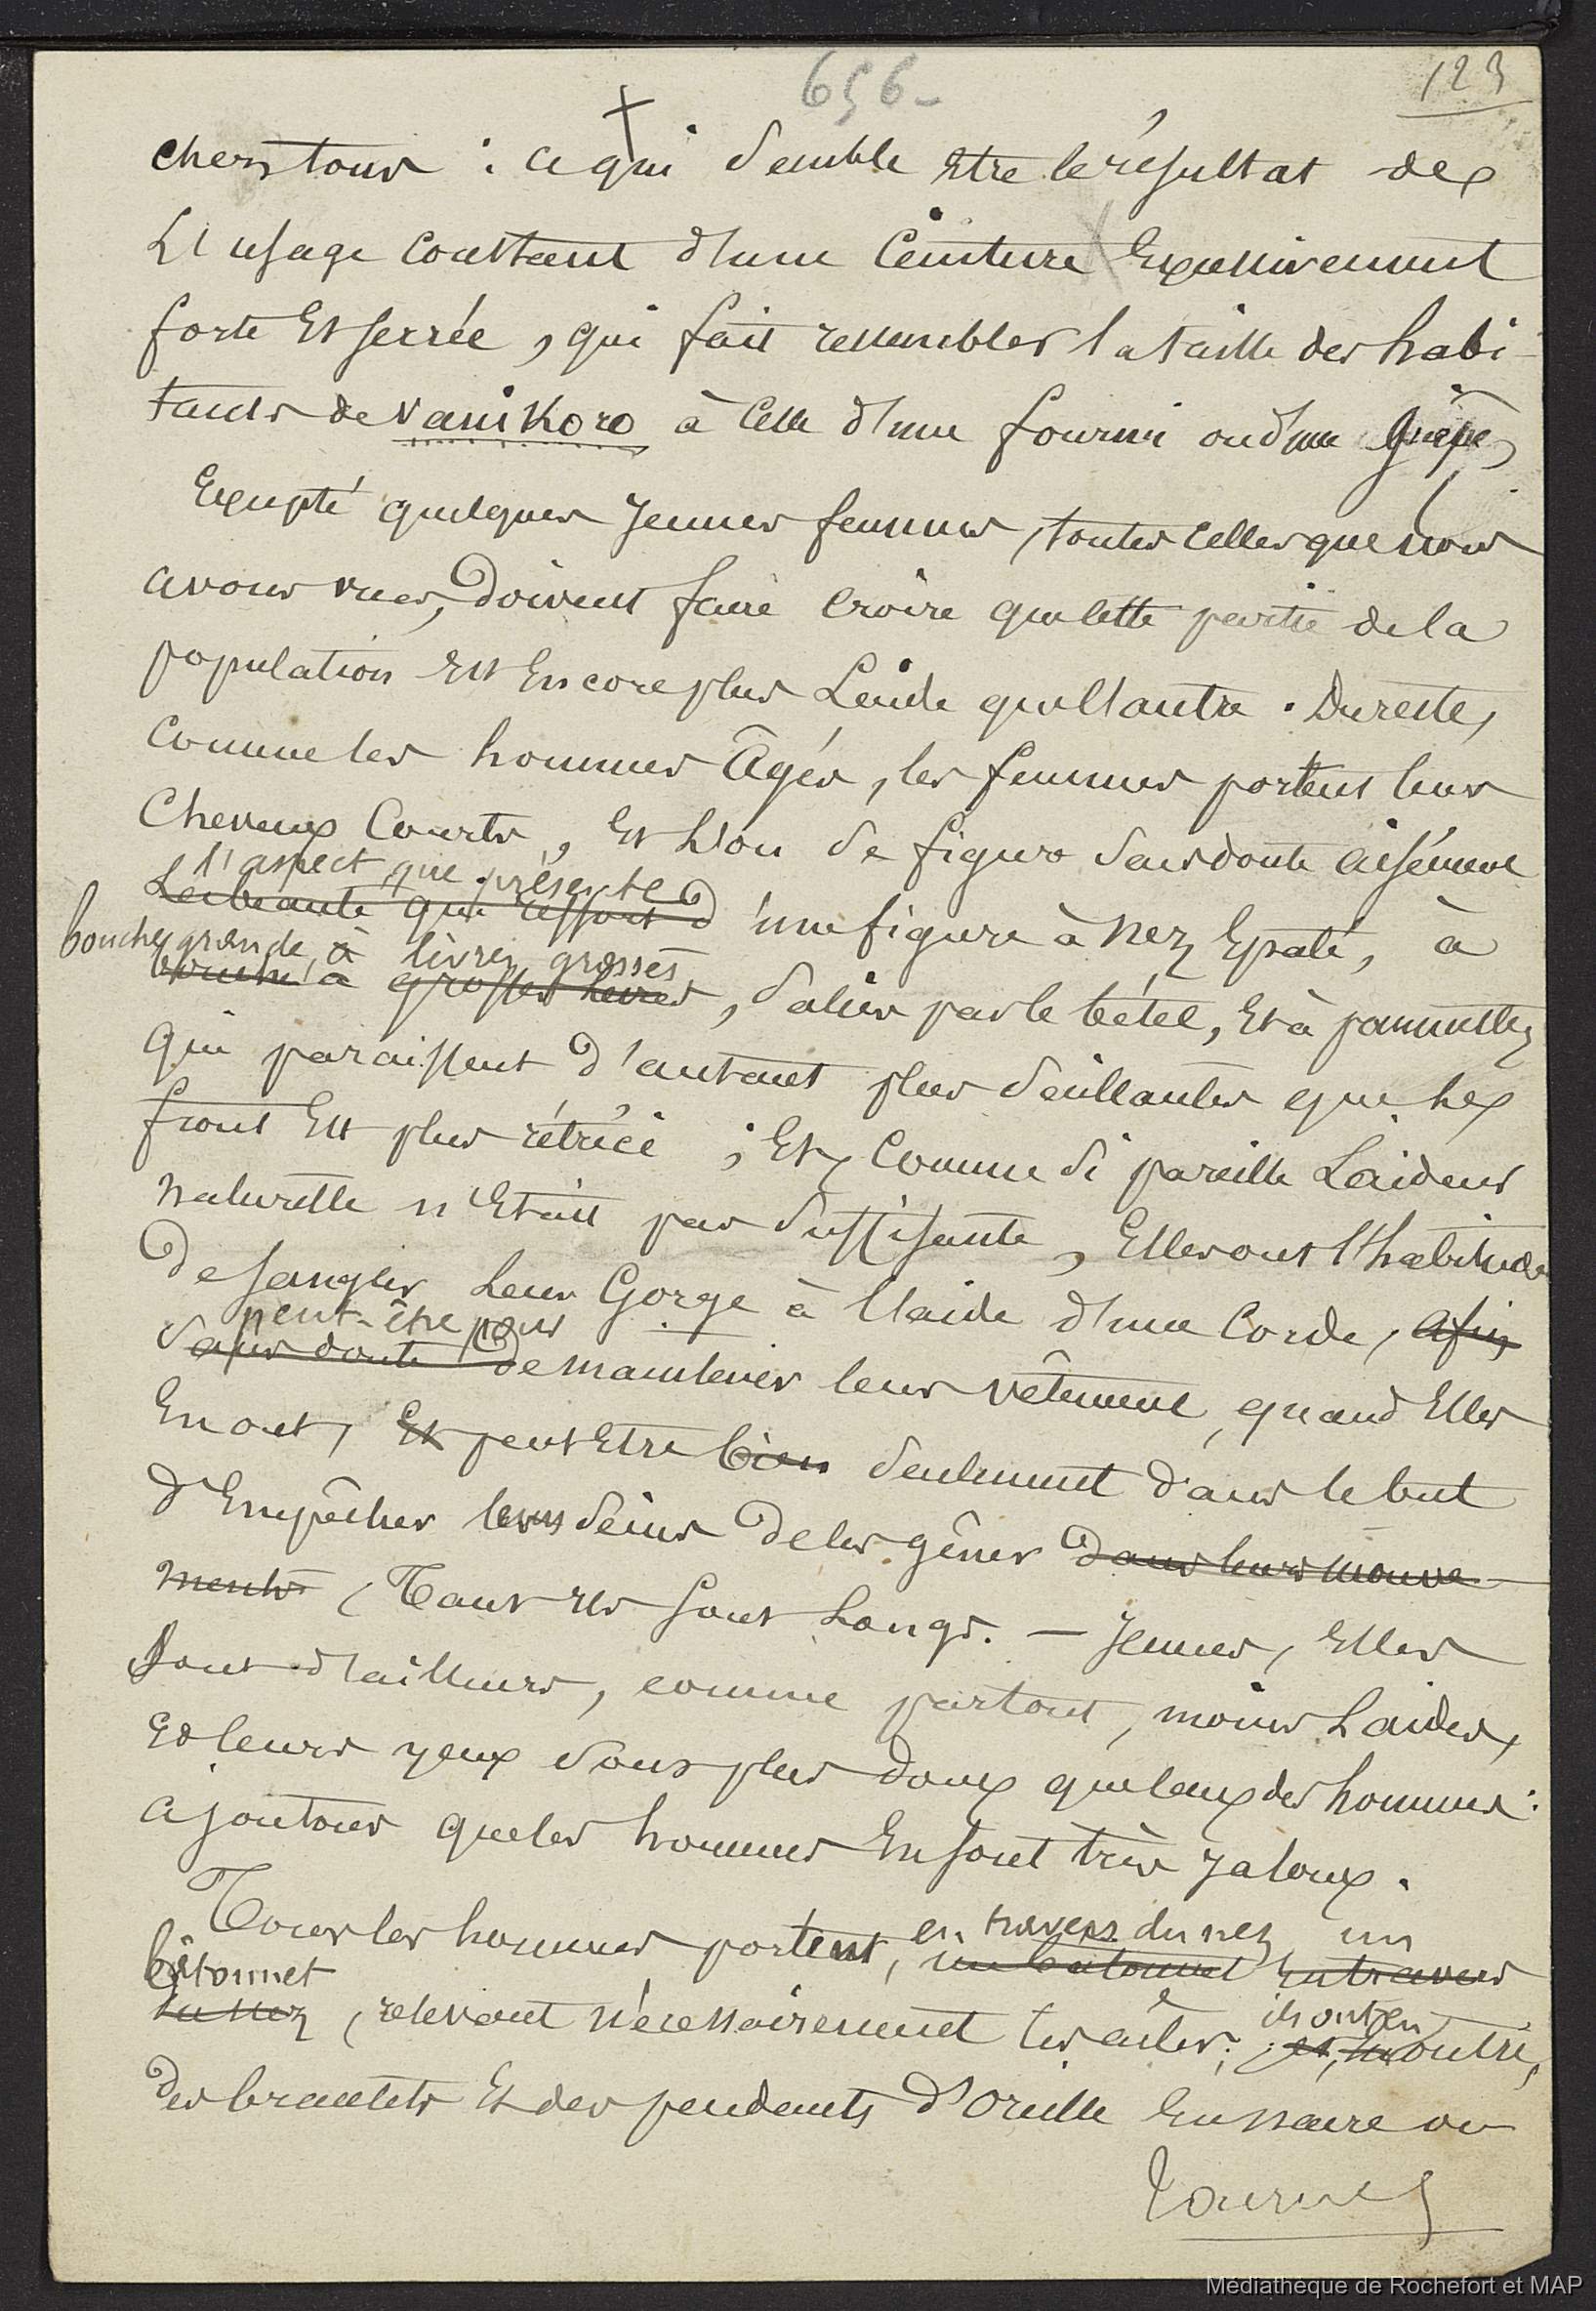 656-
123
chez tous : ce qui semble etre le résultat de
L'usage constant d'une Ceinture Excessivement
forte Et serrée, qui fait ressembler la taille des habi-
tants de Vanikoro à Celle d'une fourmi ou d'une Guêpe,
Excepté quelques jeunes femmes, toutes celles que nous
avons vues, doivent faire croire que cette partie de la
population Est Encore plus Laide que l'autre . Du reste,
Comme les hommes Âgés, les femmes portent leurs
Cheveux Courts, Et L'on se figure sans doute aisément
l'aspect que présente
La beauté qui ressort d'une figure à Nez Epaté, à
bouche grande, à livrez grosses
bouche à grosses levres, salies par le bétel, Et à pommettes
qui paraissent d'autant plus saillantes que Le
front Est plus rétréci ; Et, Comme si pareille Laideur
Naturelle n'Etait pas suffisante, Elles ont l'habitude
de sangler Leur Gorge à l'aide d'une Corde, afin
peut-être pour
sans doute de maintenir leur vêtement, quand Elles
En ont, Et peut Etre bien seulement dans le but
d'Empêcher leurs seins de les gêner dans leurs mouve-
ments, Tant ils sont Longs. — Jeunes, Elles
sont d'ailleurs, comme partout, moins Laides,
Et leurs yeux sont plus doux que ceux des hommes :
ajoutons que les hommes En sont très jaloux .
Tous les hommes portent, en travers du nez, un
un batonnet En travers
bâtonnet
du nez, relevant nécessairement les ailes ; ils ont en
et, en outre,
des bracelets Et des pendants d'Oreille En nacre ou
Tournez
Médiathèque de Rochefort et MAP